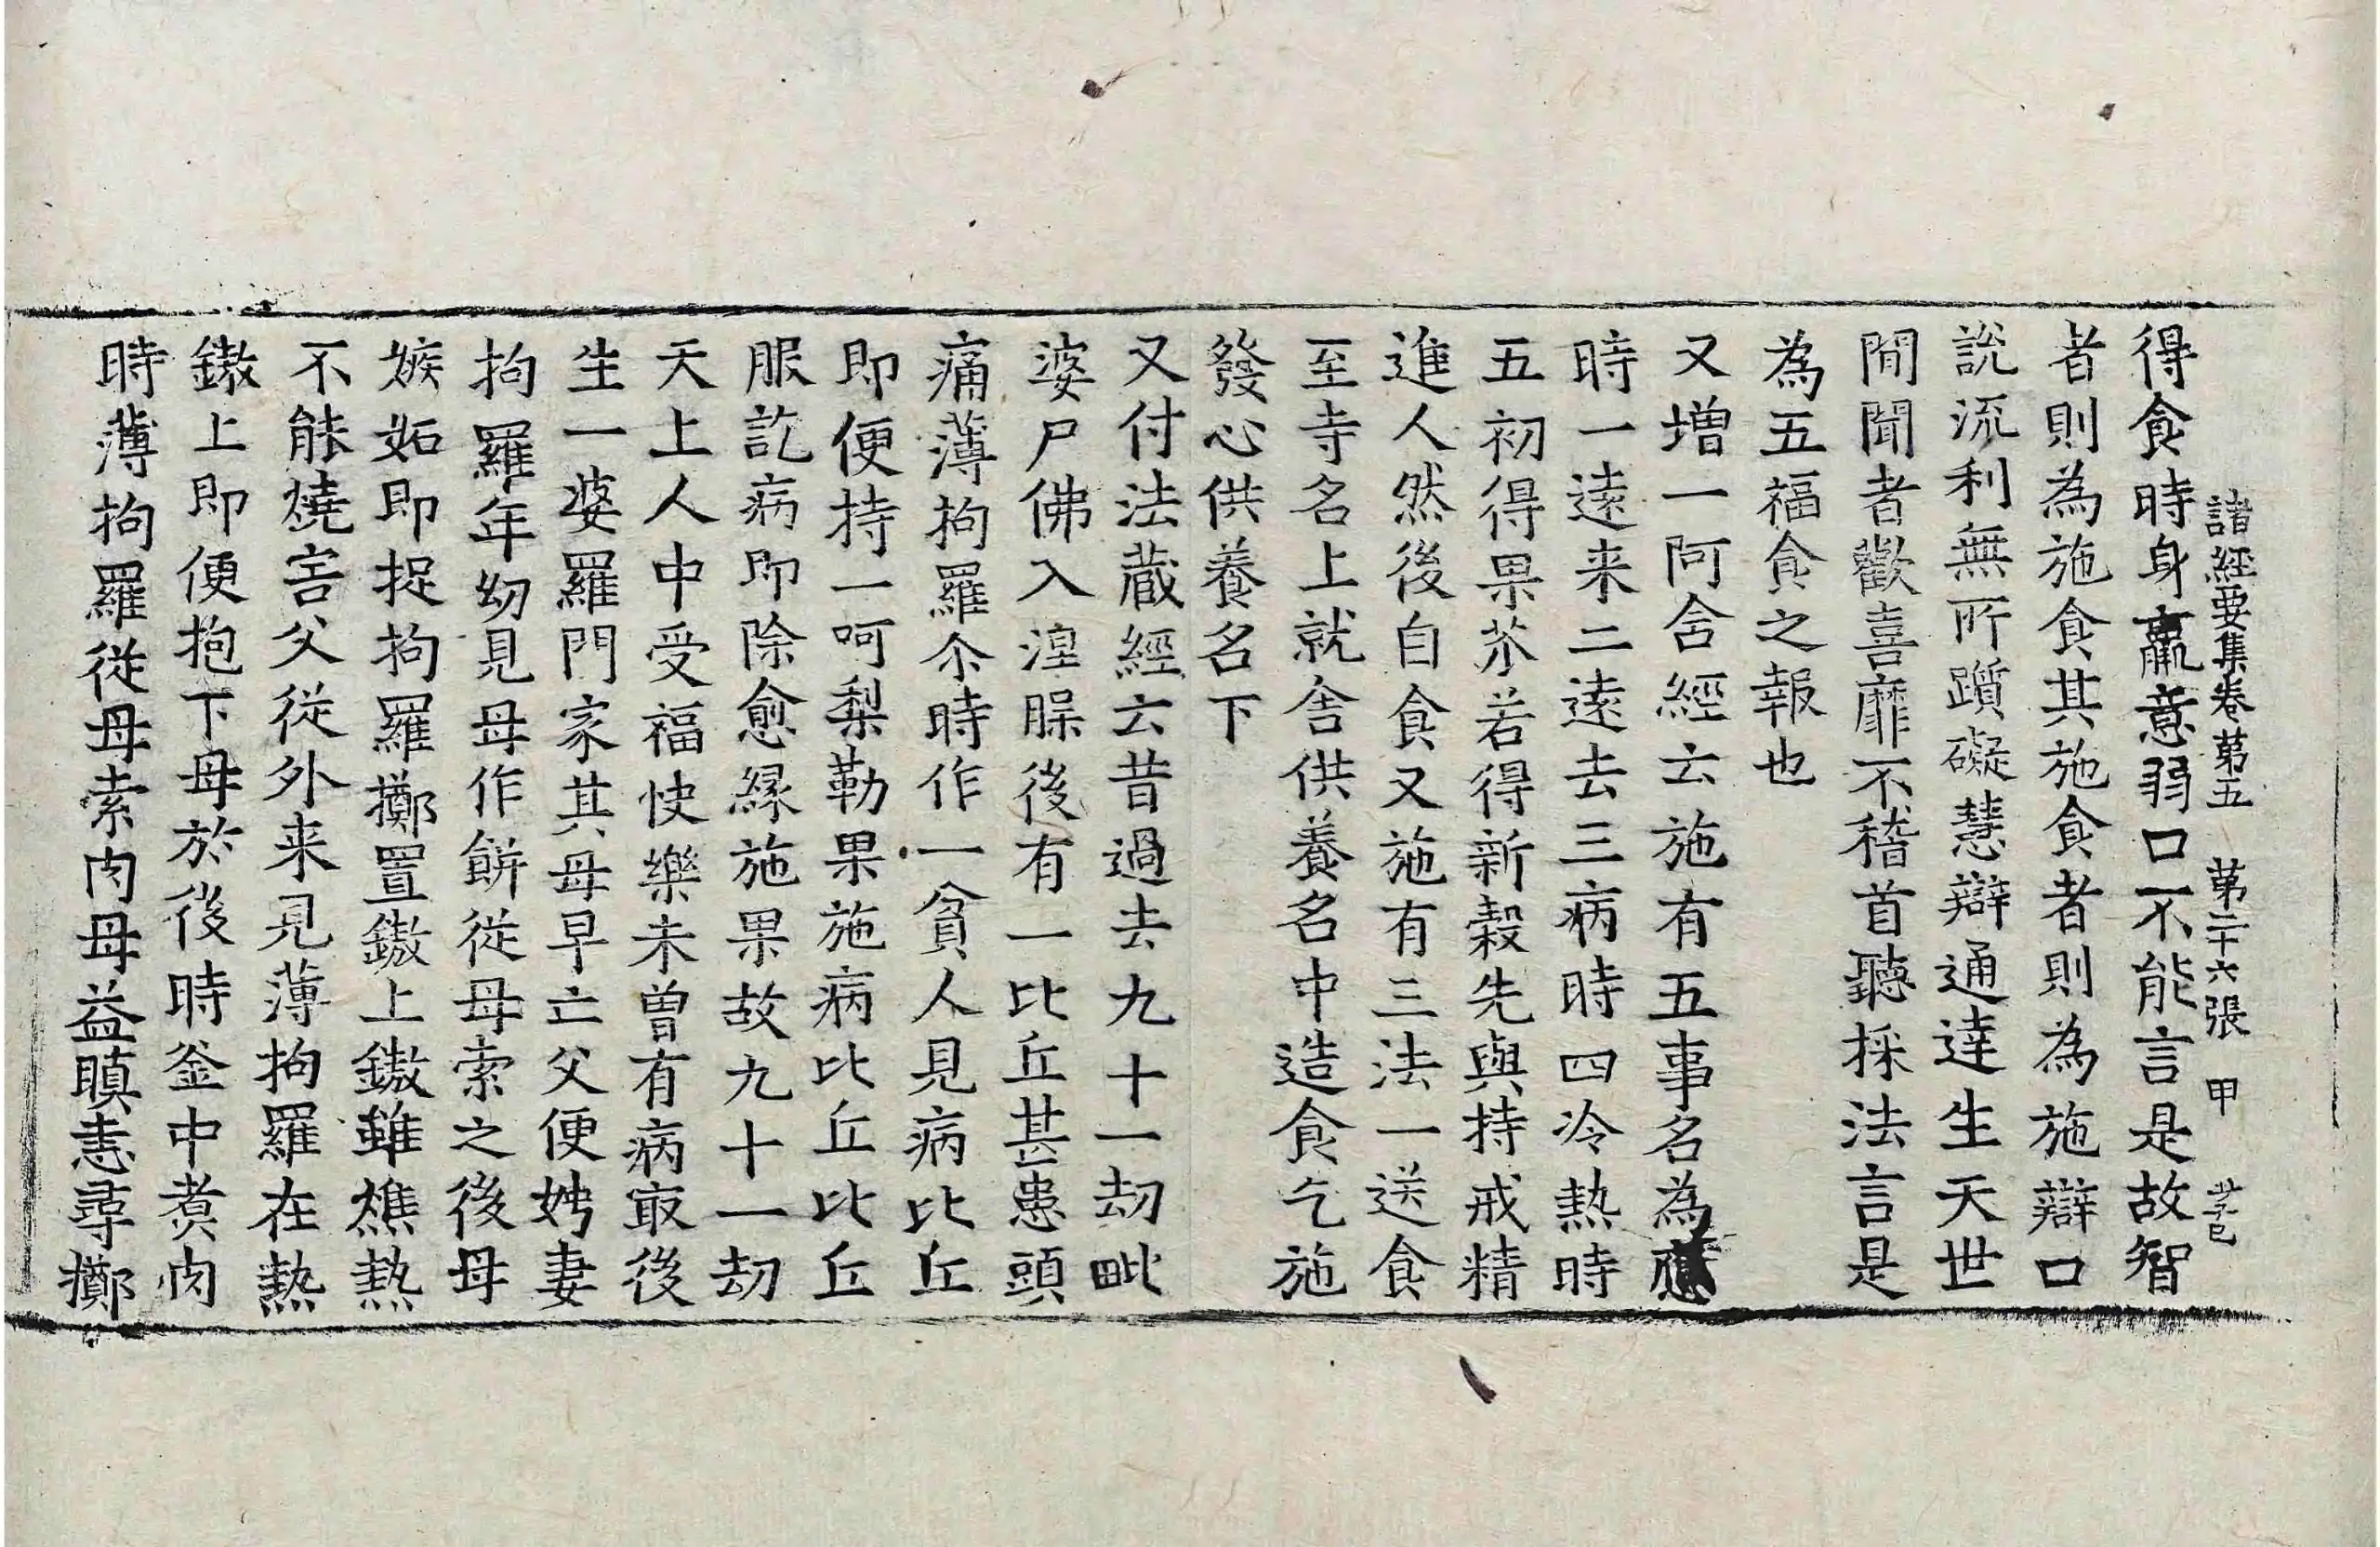 諸經要集卷苐五 苐二十六張 甲
得食時身羸意弱口不能言是故智
者則為施食其施食者則為施辯口
說流利無所躓礙慧辯通達生天世
閒聞者歡喜靡不稽首聽採法言是
為五福食之報也
又增一阿含經云施有五事名為應
時一遠来二遠去三病時四冷熱時
五初得果苶若得新穀先與持戒精
進人然後自食又施有三法一送食
至寺名上就舍供養名中造食乞施
發心供養名下
又付法蔵經云昔過去九十一劫毗
婆尸佛入湼臊後有一比丘甚患頭
痛薄拘羅尒時作一貧人見病比丘
即便持一呵梨勒果施病比丘比丘
服訖病即除愈緣施果故九十一劫
天上人中受福快樂未曽有病㝡後
生一婆羅門家其母早亡父便娉妻
拘羅年㓜見母作餅従母索之後母
嫉妬即捉拘羅擲置鏾上鏾雖燋熱
不能燒害父従外来見薄拘羅在熱
鏾上即便抱下母於後時釜中煮肉
時薄拘羅従母索肉母益瞋恚尋擲